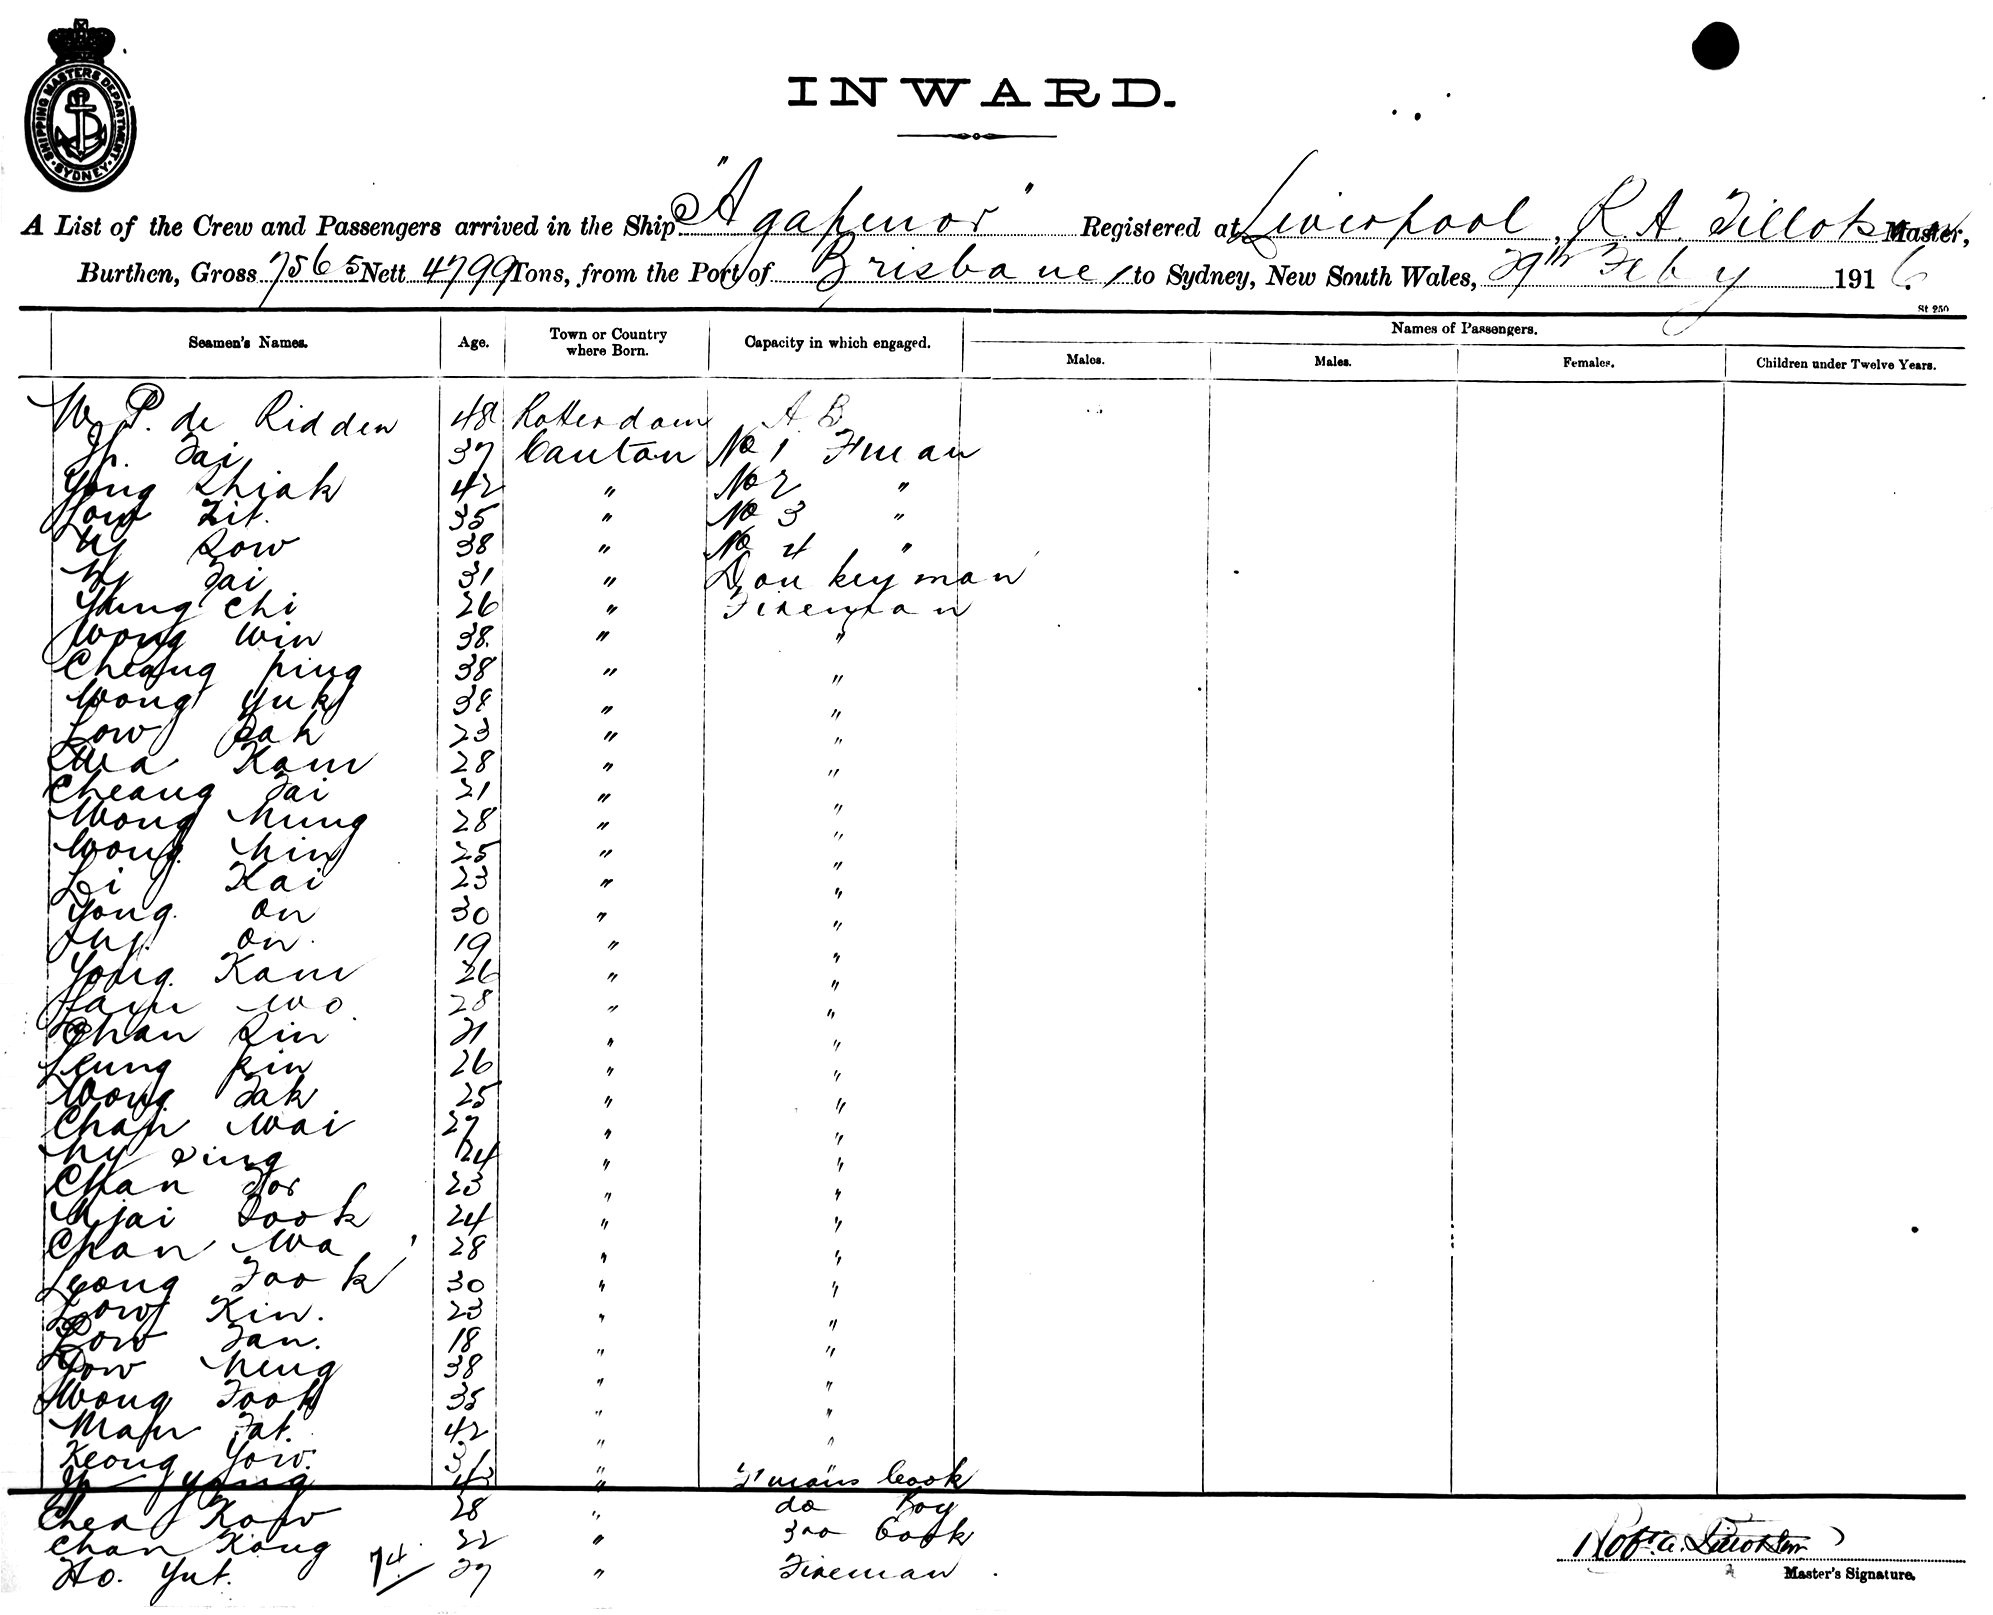 SHIPPING MASTERS DEPARTMENT
SYDNEY
INWARD.
A List of the Crew and Passengers arrived in the Ship "Agapenor" Registered at Liverpool, R. A. Tillotson Master,
Burthen, Gross 7565 Nett 4799 Tons, from the Port of Brisbane, to Sydney, New South Wales, 29th Feby 1916
St 250
Seamen's Names. Age. Town or Country where Born. Capacity in which engaged. Names of Passengers.
Males. Males. Females. Children under Twelve Years.
W. P. de Ridder 48 Rotterdam A B
Tai 37 Canton No 1 F'man
Yong Shiak 42 " No 2 "
Low 35 " No 3 "
Low 38 " No 4 "
Tai 31 " Donkeyman
Yung Chi 26 " Fireman
Wong Win 38. " "
Cheang Ping 38 " "
Wong Yuk 38 " "
Low 23 " "
Kam 28 " "
Cheang Tai 21 " "
Wong Mung 28 " "
Wong Min 25 " "
Li Kai 23 " "
Yong. On 30 " "
On. 19 " "
Yong. Kam 26 " "
Lam Wo 28 " "
Chan 21 " "
Leung 26 " "
Wong Tak 25 " "
Chan Wai 27 " "
24 " "
Chan 23 " "
24 " "
Chan Wa 28 " "
Leong Fook 30 " "
Low Kin. 23 " "
Low Tan. 18 " "
Low Meng 38 " "
Wong Fook 35 " "
Fat. 42 " "
Keong Yow. 31 "
Ip Yong 43 " F'mans Cook
Chea Kow 28 " do Boy
Chan Kong 22 " Cook
Ho. Yut. 74. 27 " Fireman
Robt. A. Tillotson
Master's Signature.